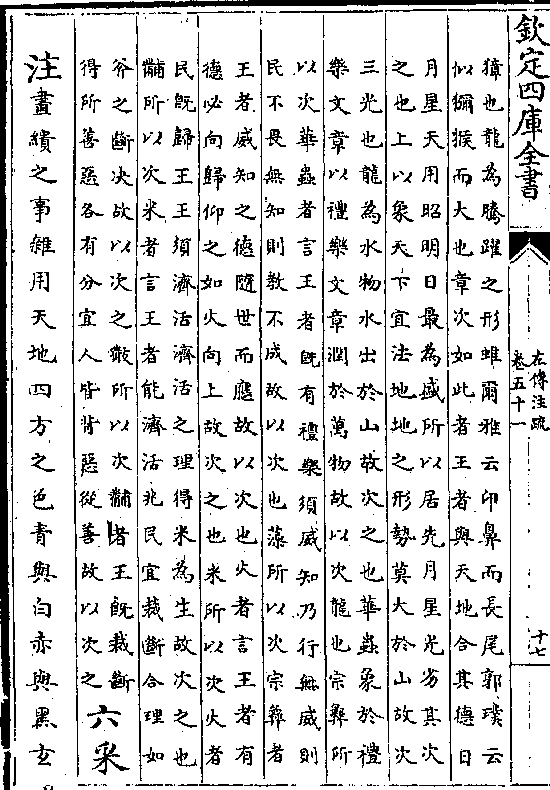 欽定四庫全書
左傳注疏
卷五十一
十七
獐也龍為騰躍之形蜼爾雅云卬鼻而長尾郭璞云
似獼猴而大也章次如此者王者與天地合其德日
月星天用昭明日最為盛所以居先月星光劣其次
之也上以象天下宜法地地之形勢莫大於山故次
三光也龍為水物水出於山故次之也華蟲象於禮
樂文章以禮樂文章潤於萬物故以次龍也宗彝所
以次華蟲者言王者既有禮樂須威知乃行無威則
民不畏無知則教不成故以次也藻所以次宗彝者
王者威知之德隨世而應故以次也火者言王者有
德必向歸仰之如火向上故次之也米所以次火者
民既歸王王須濟活濟活之理得米為生故次之也
黼所以次米者言王者能濟活兆民宜裁斷合理如
斧之斷决故以次之黻所以次黼者王既裁斷
得所善惡各有分宜人皆背惡從善故以次之
六采
注畫繢之事雜用天地四方之色青與白赤與黑玄